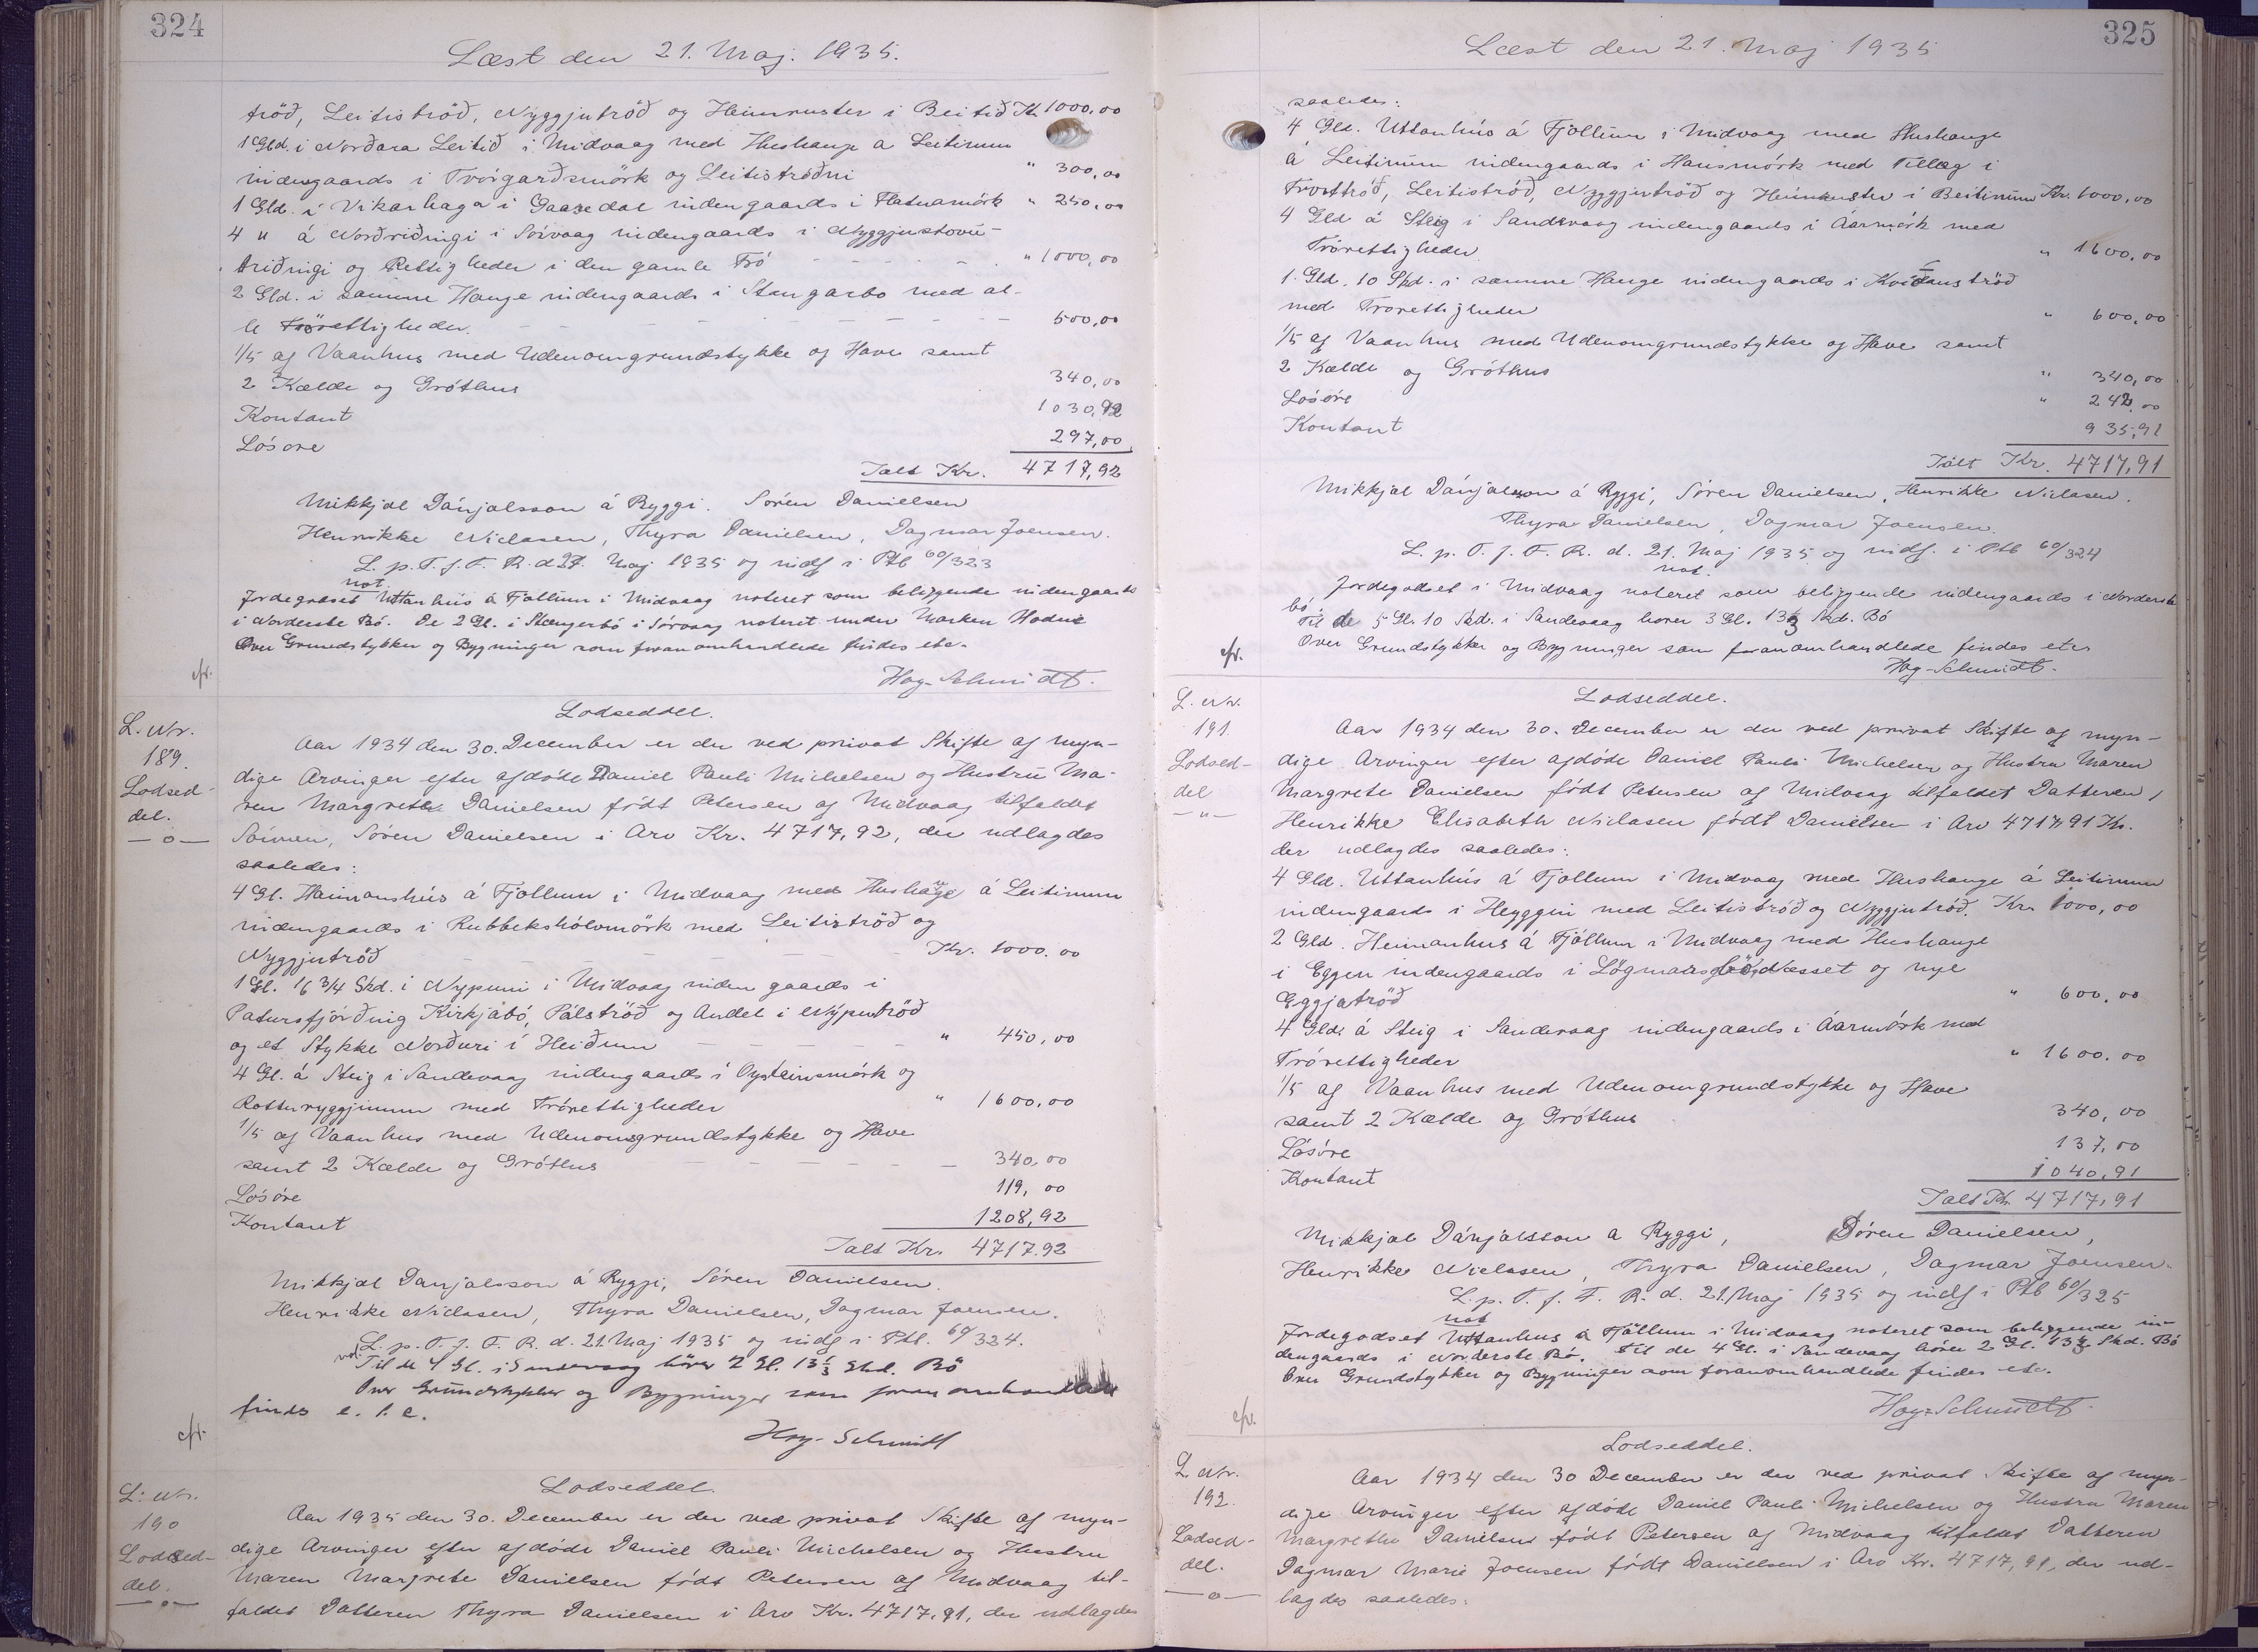 324
Læst den 21. Maj. 1935.
tröð, Leitiströð, Nyggjutröð og Heimruster i Beitið Kr. 1000,00
1 Gld. i Norðara Leitið i Midvaag med Hushauge a Leitinum
indengaards i Tvörgarðsmörk og Leitiströðni " 300,00
1 Gld. i Vikarhaga i Gaasedal indengaards i Flatnamörk " 250,00
4 " á Norðriðingi i Sörvaag indengaards i Nyggjustovu-
triðingi og Rettigheder i den gamle Tró " 1000,00
2 Gld. i samme Hauge indengaards i Stangarbo med al-
le Trörettigheder. 500,00
1/5 af Vaanhus med Udenomgrundstykke og Have samt
2 Kælde og Gróthus 340,00
Kontant 1030,92
Lósøre 297,00
Talt Kr. 4717,92
Mikkjal Dánjalsson á Ryggi. Sören Danielsen
Henrikke Niclasen, Thyra Danielsen, Dagmar Joensen.
L. p. T. f. F. R. d. 21. Maj 1935 og indf i Ptb 60/323
not.
Jordegodset Uttanhús á Fjøllum i Midvaag noteret som beliggende indengaards
i Norderste Bó. De 2 Gl. i Stangerbó i Sörvaag noteret under Marken Hodne
Over Grundstykker og Bygninger som foranomhandlede findes etc.
cfr.
Hoy-Schmidt.
Lodseddel.
L. Nr.
189.
Lodsed-
del.
—o—
Aar 1934 den 30. December er der ved privat Skifte af myn-
dige Arvinger efter afdöde Daniel Pauli Michelsen og Hustru Ma-
ren Margrethe Danielsen födt Petersen af Midvaag tilfaldet
Sönnen, Sören Danielsen i Arv Kr. 4717,92, der udlagdes
saaledes:
4 Gl. Haimanshús á Fjøllum i Midvaag med Hushauge á Leitinum
indengaards i Rubbekshólvmörk med Leitiströð og
Nyggjutröð Kr. 1000.00
1 Gl. 16 3/4 Skd. i Nypuni i Midvaag inden gaards i
Patursfjórðing Kirkjábó, Pálströð og Andel i Nýputröð
og et Stykke Norðuri í Heiðum " 450,00
4 Gl. á Steig i Sandevaag indengaards i Oysteinsmörk og
Rotturyggjinum med Trórettigheder " 1600,00
1/5 af Vaanhus med Udenomsgrundstykke og Have
samt 2 Kælde og Gróthus 340,00
Lósóre 119,00
Kontant 1208,92
Talt Kr. 4717.92
Mikkjal Danjalsson á Ryggi, Sören Danielsen.
Henrikke Niclasen, Thyra Danielsen, Dagmar Joensen.
L. p. T. f. F. R. d. 21. Maj 1935 og indf i Ptb. 60/324.
not. Til de 4 Gl. i Sandevaag hører 2 Gl. 13 1/3 Skd. Bö
Over Grundstykker og Bygninger som foran omhandlede
findes e. t. c.
cfr.
Hoy-Schmidt
Lodseddel.
L. Nr.
190
Lodsed-
del.
—o—
Aar 1935 den 30. December er der ved privat Skifte af myn-
dige Arvinger efter afdöde Daniel Pauli Michelsen og Hustru
Maren Margrete Danielsen födt Petersen af Midvaag til-
faldet Datteren Thyra Danielsen i Arv Kr. 4717,91, der udlagdes
325
Læst den 21. Maj 1935
saaledes:
4 Gld. Uttanhús á Fjøllum i Midvaag med Hushauge
á Leitinum indengaards i Hansmörk med Tillæg i
Trosttröð, Leitiströð, Nyggjutröð og Heimruster i Beitinum Kr. 1000,00
4 Gld á Steig i Sandevaag indengaards i Áarmörk med
Trórettigheder. " 1600,00
1 Gld. 10 Skd. i samme Hauge indengaards i Kvíðanströð
med Trorettigheder " 600,00
1/5 af Vaanhus med Udenomgrundstykke og Have samt
2 Kælde og Gróthus " 340,00
Lósóre " 242,00
Kontant 935,91
Talt Kr. 4717,91
Mikkjal Dánjalsson á Ryggi, Sören Danielsen, Henrikke Niclasen.
Thyra Danielsen, Dagmar Joensen.
L. p. T. f. F. R. d. 21. Maj 1935 og indf. i Ptb 60/324
not.
Jordegodset i Midvaag noteret som beliggende indengaards i Norderste
bó.
Til de 5 Gl. 10 Skd. i Sandevaag hører 3 Gl. 13 1/3 Skd. Bó
Over Grundstykker og Bygninger som foranomhandlede findes etc.
cfr.
Hoy-Schmidt.
Lodseddel.
L. Nr.
191.
Lodsed-
del
—"—
Aar 1934 den 30. December er der ved privat Skifte af myn-
dige Arvinger efter afdöde Daniel Pauli Michelsen og Hustru Maren
Margrete Danielsen födt Petersen af Midvaag tilfaldet Datteren,
Henrikke Elisabeth Niclasen födt Danielsen i Arv 4717,91 Kr.
der udlagdes saaledes:
4 Gld. Uttanhús á Fjøllum i Midvaag med Hushauge á Leitinum
indengaards i Heyggin med Leitiströð og Nyggjutröð. Kr. 1000,00
2 Gld. Heimanhus á Fjøllum i Midvaag med Hushauge
i Eggen indengaards i Lögmans Nesset og nye
Eggjatröð " 600,00
4 Gld. á Steig i Sandevaag indengaards i Áarmörk med
Trórettigheder " 1600.00
1/5 af Vaanhus med Udenomgrundstykke og Have
samt 2 Kælde og Gróthus 340,00
Lósóre 137,00
Kontant 1040,91
Talt Kr. 4717,91
Mikkjal Dánjalsson a Ryggi, Sören Danielsen,
Henrikke Niclasen, Thyra Danielsen, Dagmar Joensen.
L. p. T. f. F. R. d. 21. Maj 1935 og indf i Ptb 60/325
not
Jordegodset Uttanhus á Fjøllum i Midvaag noteret som beliggende in-
dengaards i Norderste Bó. Til de 4 Gl. i Sandevaag hører 2 Gl. 13 1/3 Skd. Bó
Over Grundstykker og Bygninger som foranomhandlede findes etc.
cfr.
Hoy-Schmidt.
Lodseddel.
L. Nr.
192.
Lodsed-
del.
—o—
Aar 1934 den 30 December er der ved privat Skifte af myn-
dige Arvinger efter afdöde Daniel Pauli Michelsen og Hustru Maren
Margrethe Danielsen födt Petersen af Midvaag tilfaldet Datteren
Dagmar Marie Joensen födt Danielsen i Arv Kr. 4717,91, der ud-
lagdes saaledes: